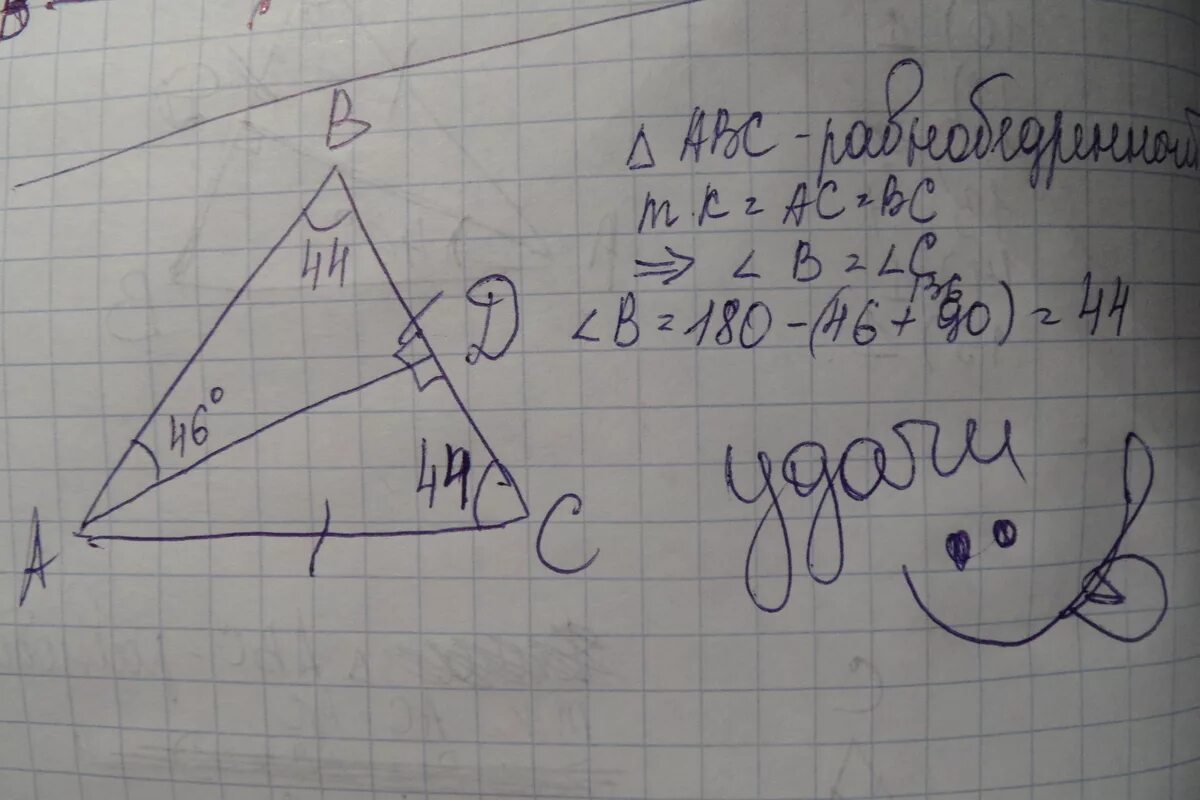 B
44
D
46°
44
A
C
△ ABC - равнобедренный
т.к = AC = BC
⇒ ∠ B = ∠C
136
∠B = 180 - (46 + 90) = 44
удачи